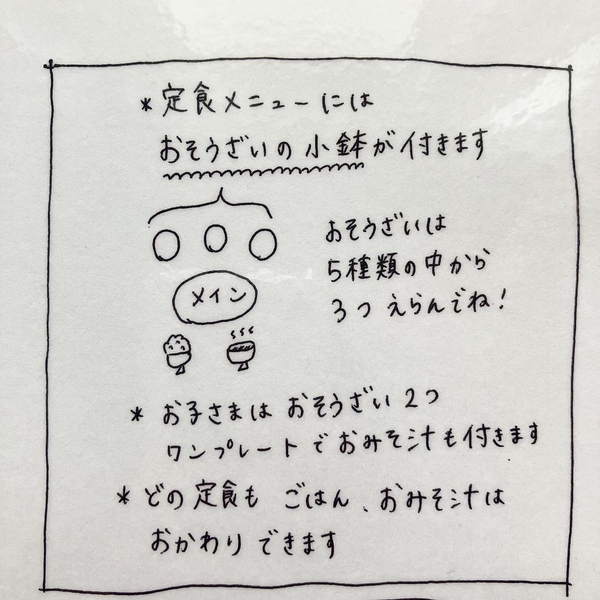 *定食メニューには
おそうざいの小鉢が付きます
おそうざいは
5種類の中から
3つえらんでね!
メイン
* お子さまは おそうざい 2つ
ワンプレートでおみそ汁も付きます
* どの定食も ごはん、おみそ汁は
おかわりできます